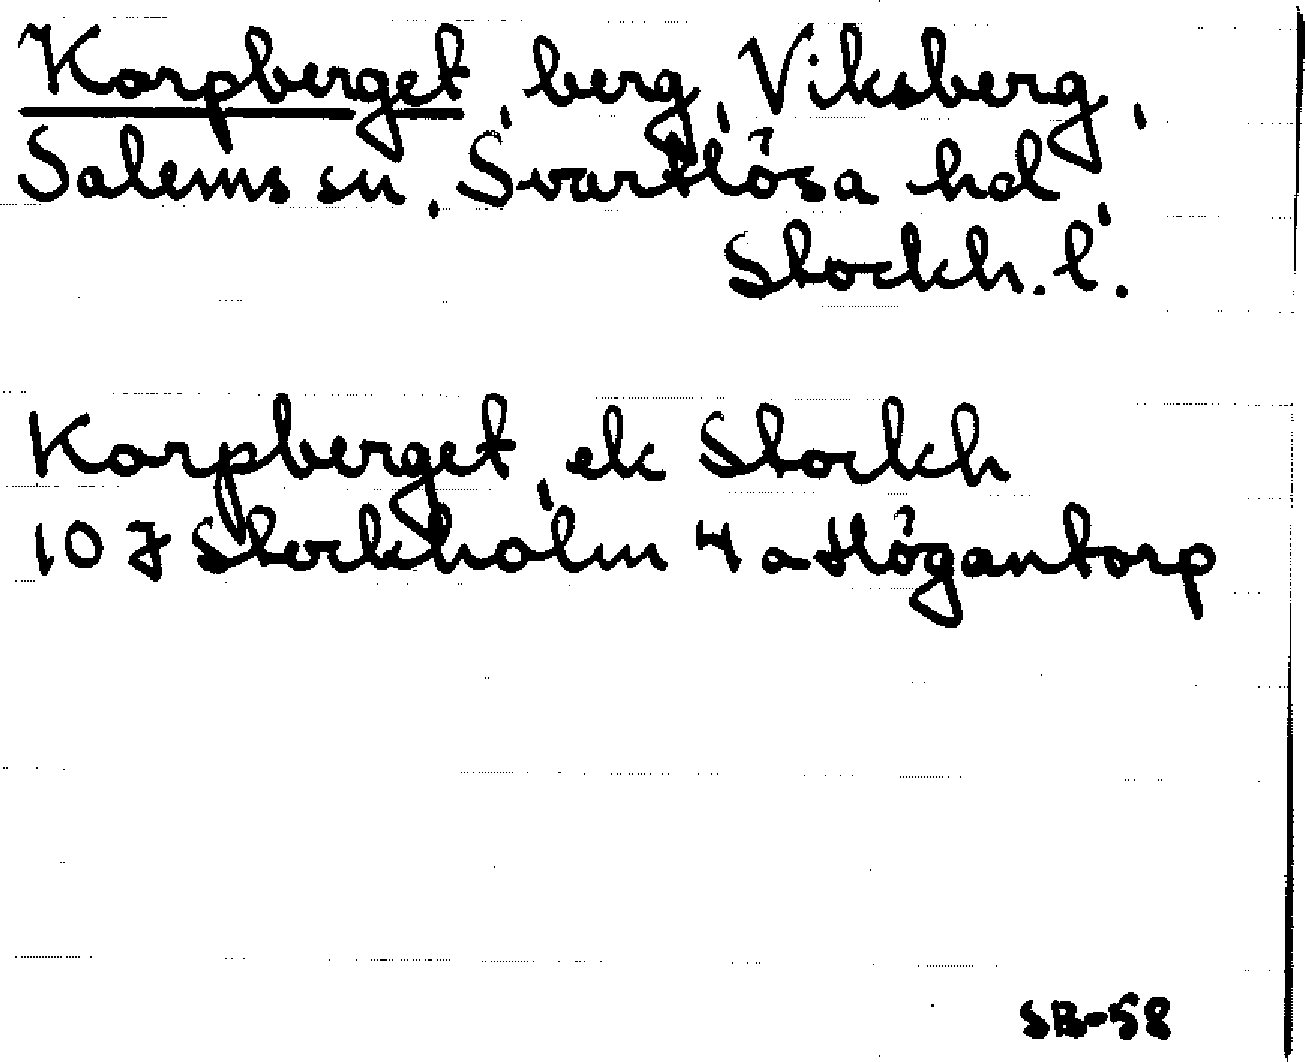 Korpberget, berg, Viksberg,
Salems sn, Svartlösa hd,
Stockh. l.
Korpberget, ek Stockh
10 J Stockholm 4 a Högantorp
SB-58